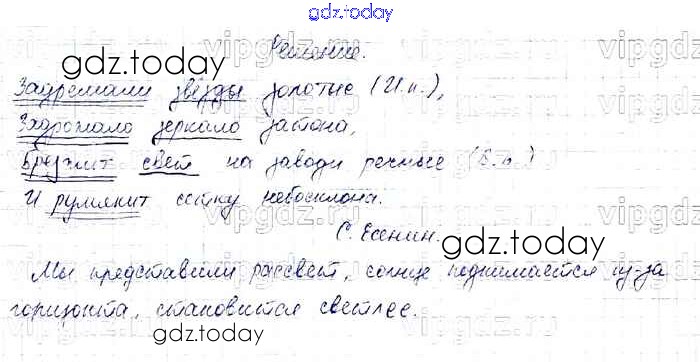 gdz.today
Решение.
gdz.today
Задремали звёзды золотые (И.п.),
Задрожало зеркало затона,
Брезжит свет на заводи речные (В.п.)
И румянит сетку небосклона.
С. Есенин.
gdz.today
Мы представили рассвет, солнце поднимается из-за
горизонта, становится светлее.
gdz.today
vipgdz.ru